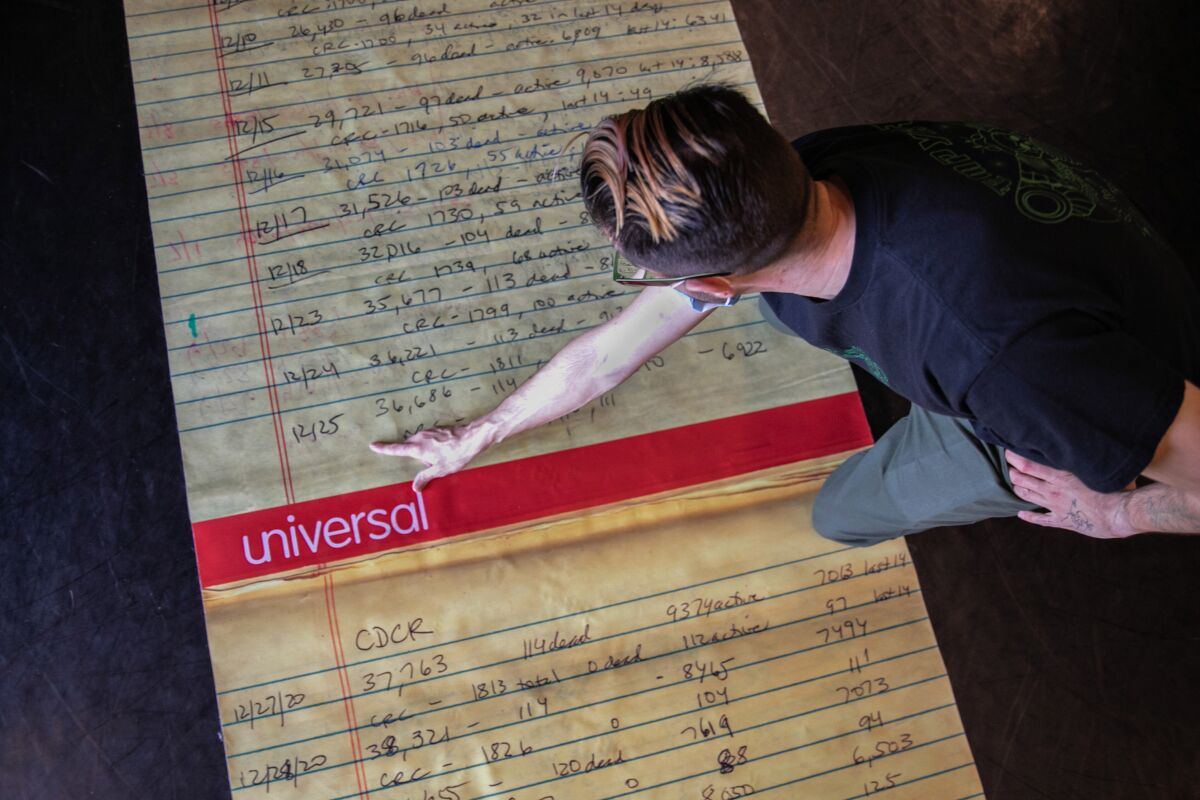 12/10 26,430 - 96 dead active
CRC-1700, 34 active, 32 in last 14 days
12/11 - 96 dead - active 6809 last 14: 6341
12/15 29,721 - 97 dead - active 9,070 last 14: 8,588
CRC-1716, 50 active, last 14 - 49
12/16 31,074 - 103 dead - active
CRC 1726, 55 active
12/17 31,526 - 103 dead -
CRC 1730, 59 active
12/18 32,016 - 104 dead - 8
CRC 1739, 68 active
12/23 35,677 - 113 dead - 8
CRC-1799, 100 active
12/24 36,221 - 113 dead - 9
CRC - 1811
12/25 36,686 - 114 - 6922
universal
CDCR
12/27/20 37,763 114 dead 9374 active 7013 last 14
CRC - 1813 total 0 dead 112 active 97 last 14
38,321 - 114 - 8465 7494
CRC - 1826 0 104 111
120 dead 7619 7073
0 94
8050 6,503
125